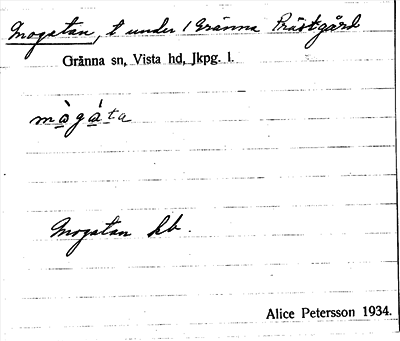 Mogatan, t under 1 Gränna Prästgård
Gränna sn, Vista hd, Jkpg. l.
mògáta
Mogatan hb.
Alice Petersson 1934.